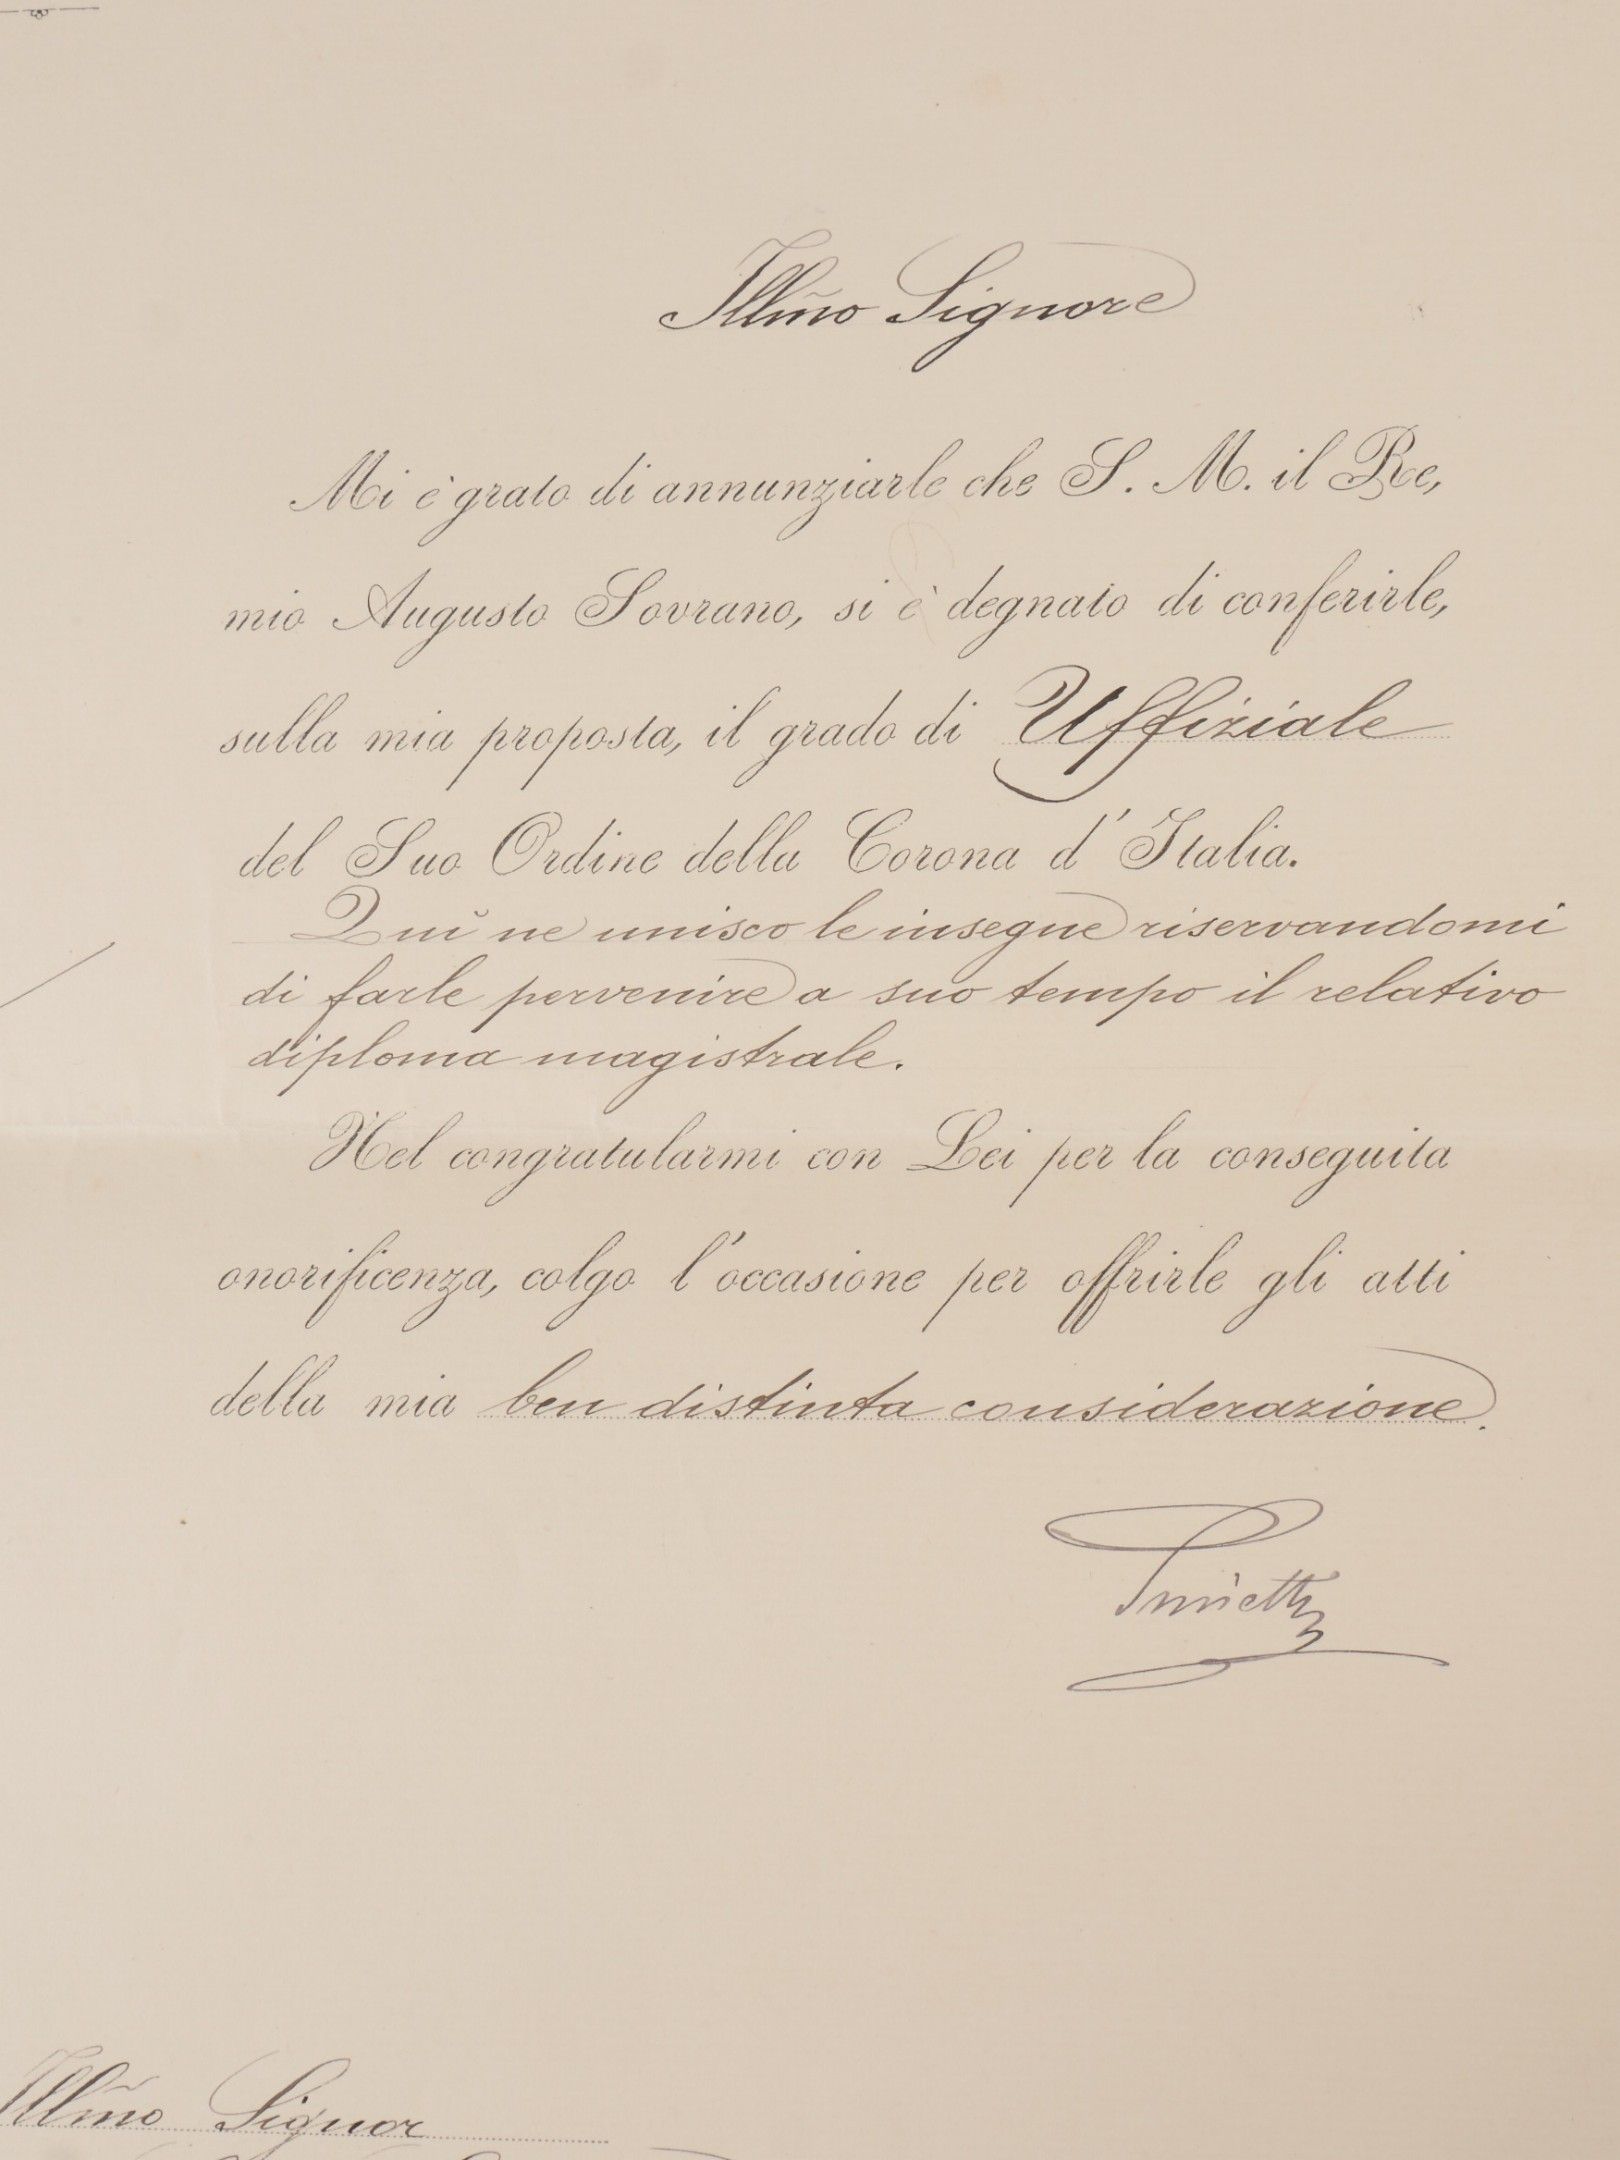 Illm̃o Signore
Mi è grato di annunziarle che S. M. il Re,
mio Augusto Sovrano, si è degnato di conferirle,
sulla mia proposta, il grado di Uffiziale
del Suo Ordine della Corona d'Italia.
Quì ne unisco le insegne riservandomi
di farle pervenire a suo tempo il relativo
diploma magistrale.
Nel congratularmi con Lei per la conseguita
onorificenza, colgo l'occasione per offrirle gli atti
della mia ben distinta considerazione.
Illm̃o Signor